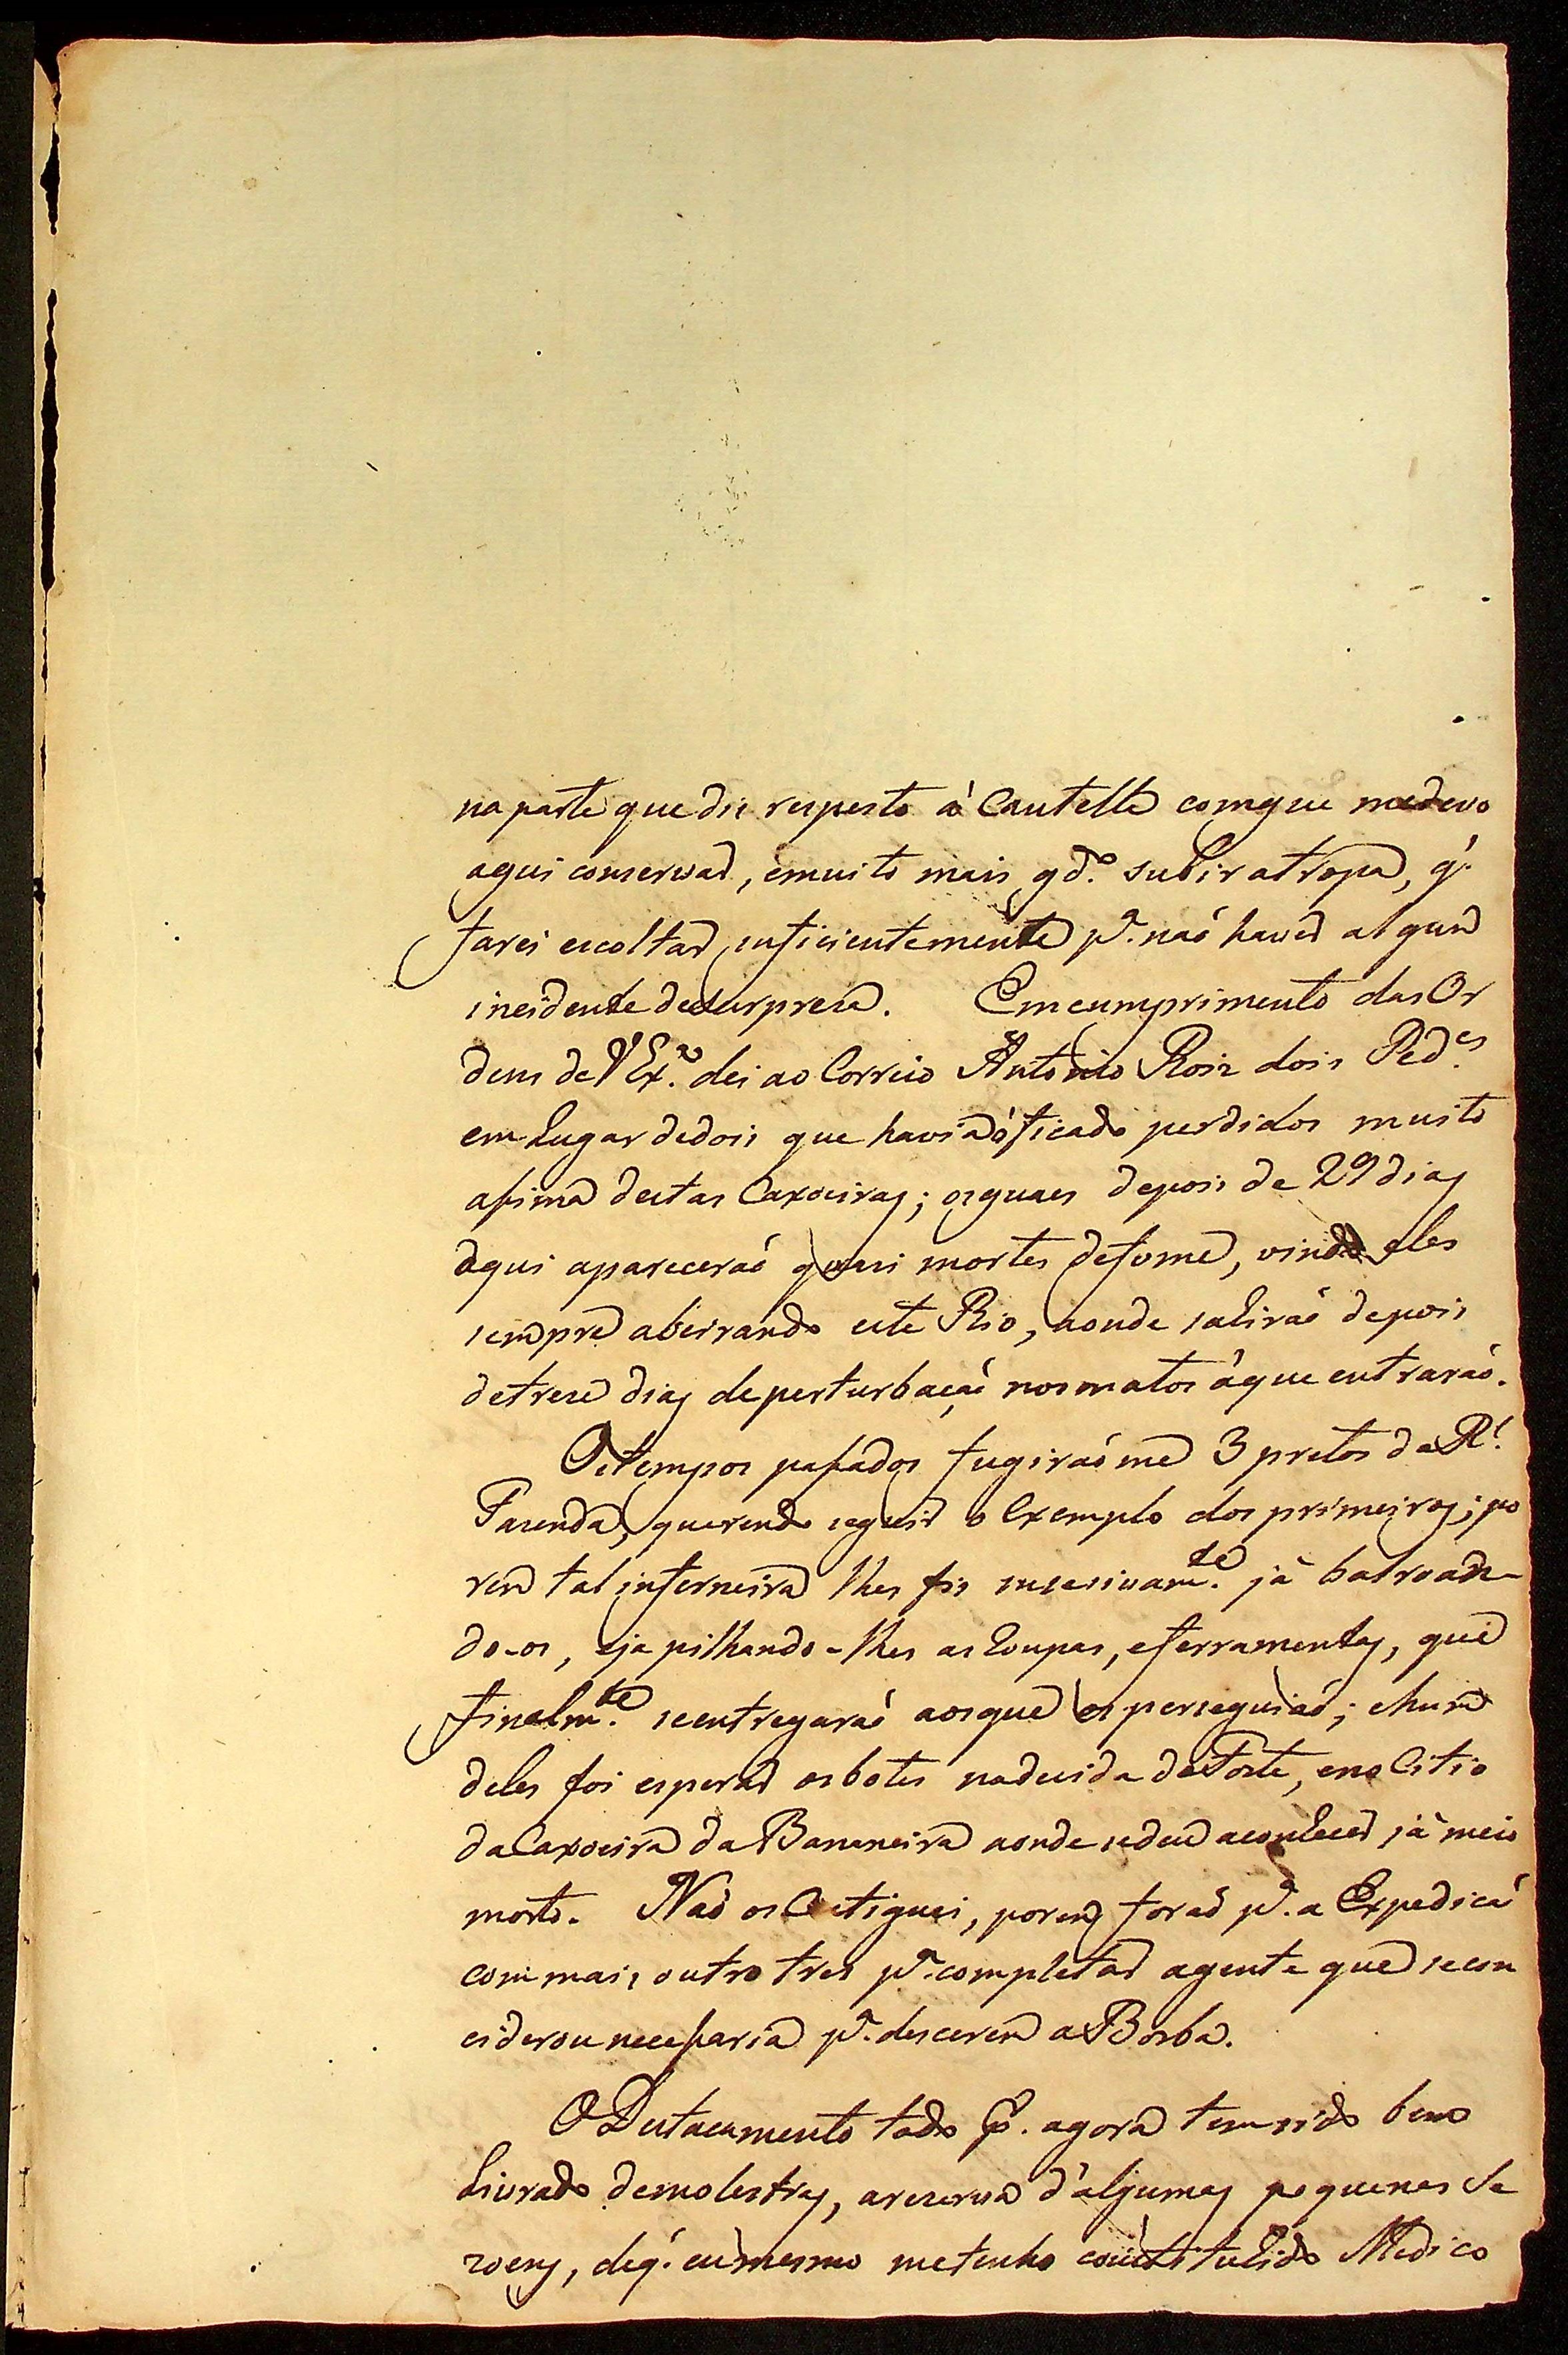 na parte que dis respeito á Cautella comque medevo
aqui conservar, emuito mais qdº subir atropa, q'
farei escoltar suficientemente pª. naó haver algum
incidente desurpreza. Emcumprimento das Or
dens de V Exª. dei ao Correio Antonio Roiz dois Pedes
em Lugar dedois que haviaó ficado perdidos muito
asima destas Caxoeiras; osquaes depois de 29 dias
aqui apareceraó quasi mortos defome, vindo eles
sempre abeirando este Rio, aonde sahiraó depois
detreze dias deperturbaçaó nosmatos áque entraraó.
Ostempos pasados fugiraóme 3 pretos da Rl.
Fazenda, querendo seguir o Exemplo dos primeiros; po
rem tal inferneira lhes fis sucesivamte. já balroan-
do-os, eja pilhando-lhes as Roupas, eferramentas, que
finalmte. seentregaraó aosque os perseguiaó; ehum
deles foi esperar osbotes nadescida do Forte, eno Citio
daCaxoeira da Bananeira aonde sedeu aconhecer já meio
morto. Naó os Castiguei, porem foraó pª. a Expedicaó
com mais outro tres pª. completar agente que secon
ciderou necesaria pª. descerem a Borba.
O Destacamento todo pr. agora temsido bem
Livrado demolestias, arezerva d'algumas pequenas Se
zoens, deq'. eu mesmo metenho constituhido Medico